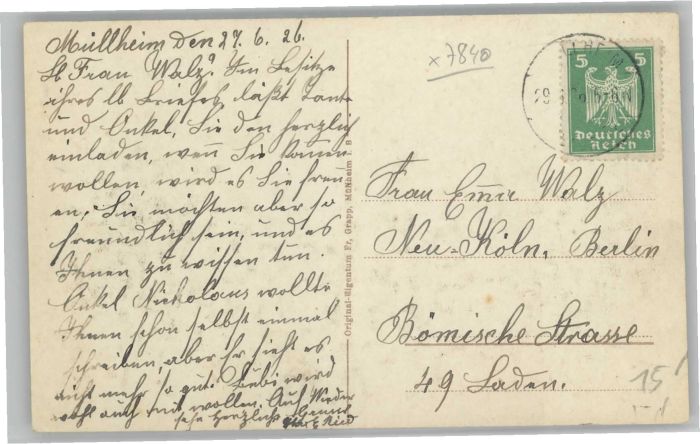 Müllheim den 27. 6. 26.
Lb Frau Walz! Im Besitze
ihres lb Briefes, läßt Tante
und Onkel, Sie den herzlich
einladen, wenn Sie kommen
wollen, wird es Sie freu
en, Sie möchten aber so
freundlich sein, und es
Ihnen zu wissen tun.
Onkel Nickolaus wollte
Ihnen schon selbst einmal
schreiben, aber Er sieht es
nicht mehr so gut. Bubi wird
wohl auch mit wollen. Auf Wieder
sehn herzlichst
Original-Eigentum Fr. Grapp, Müllheim i. B
x 7840
5 5
Deutsches
Reich
Frau Emir Walz
Neu-Köln, Berlin
Bömische Strasse
49 Laden.
15